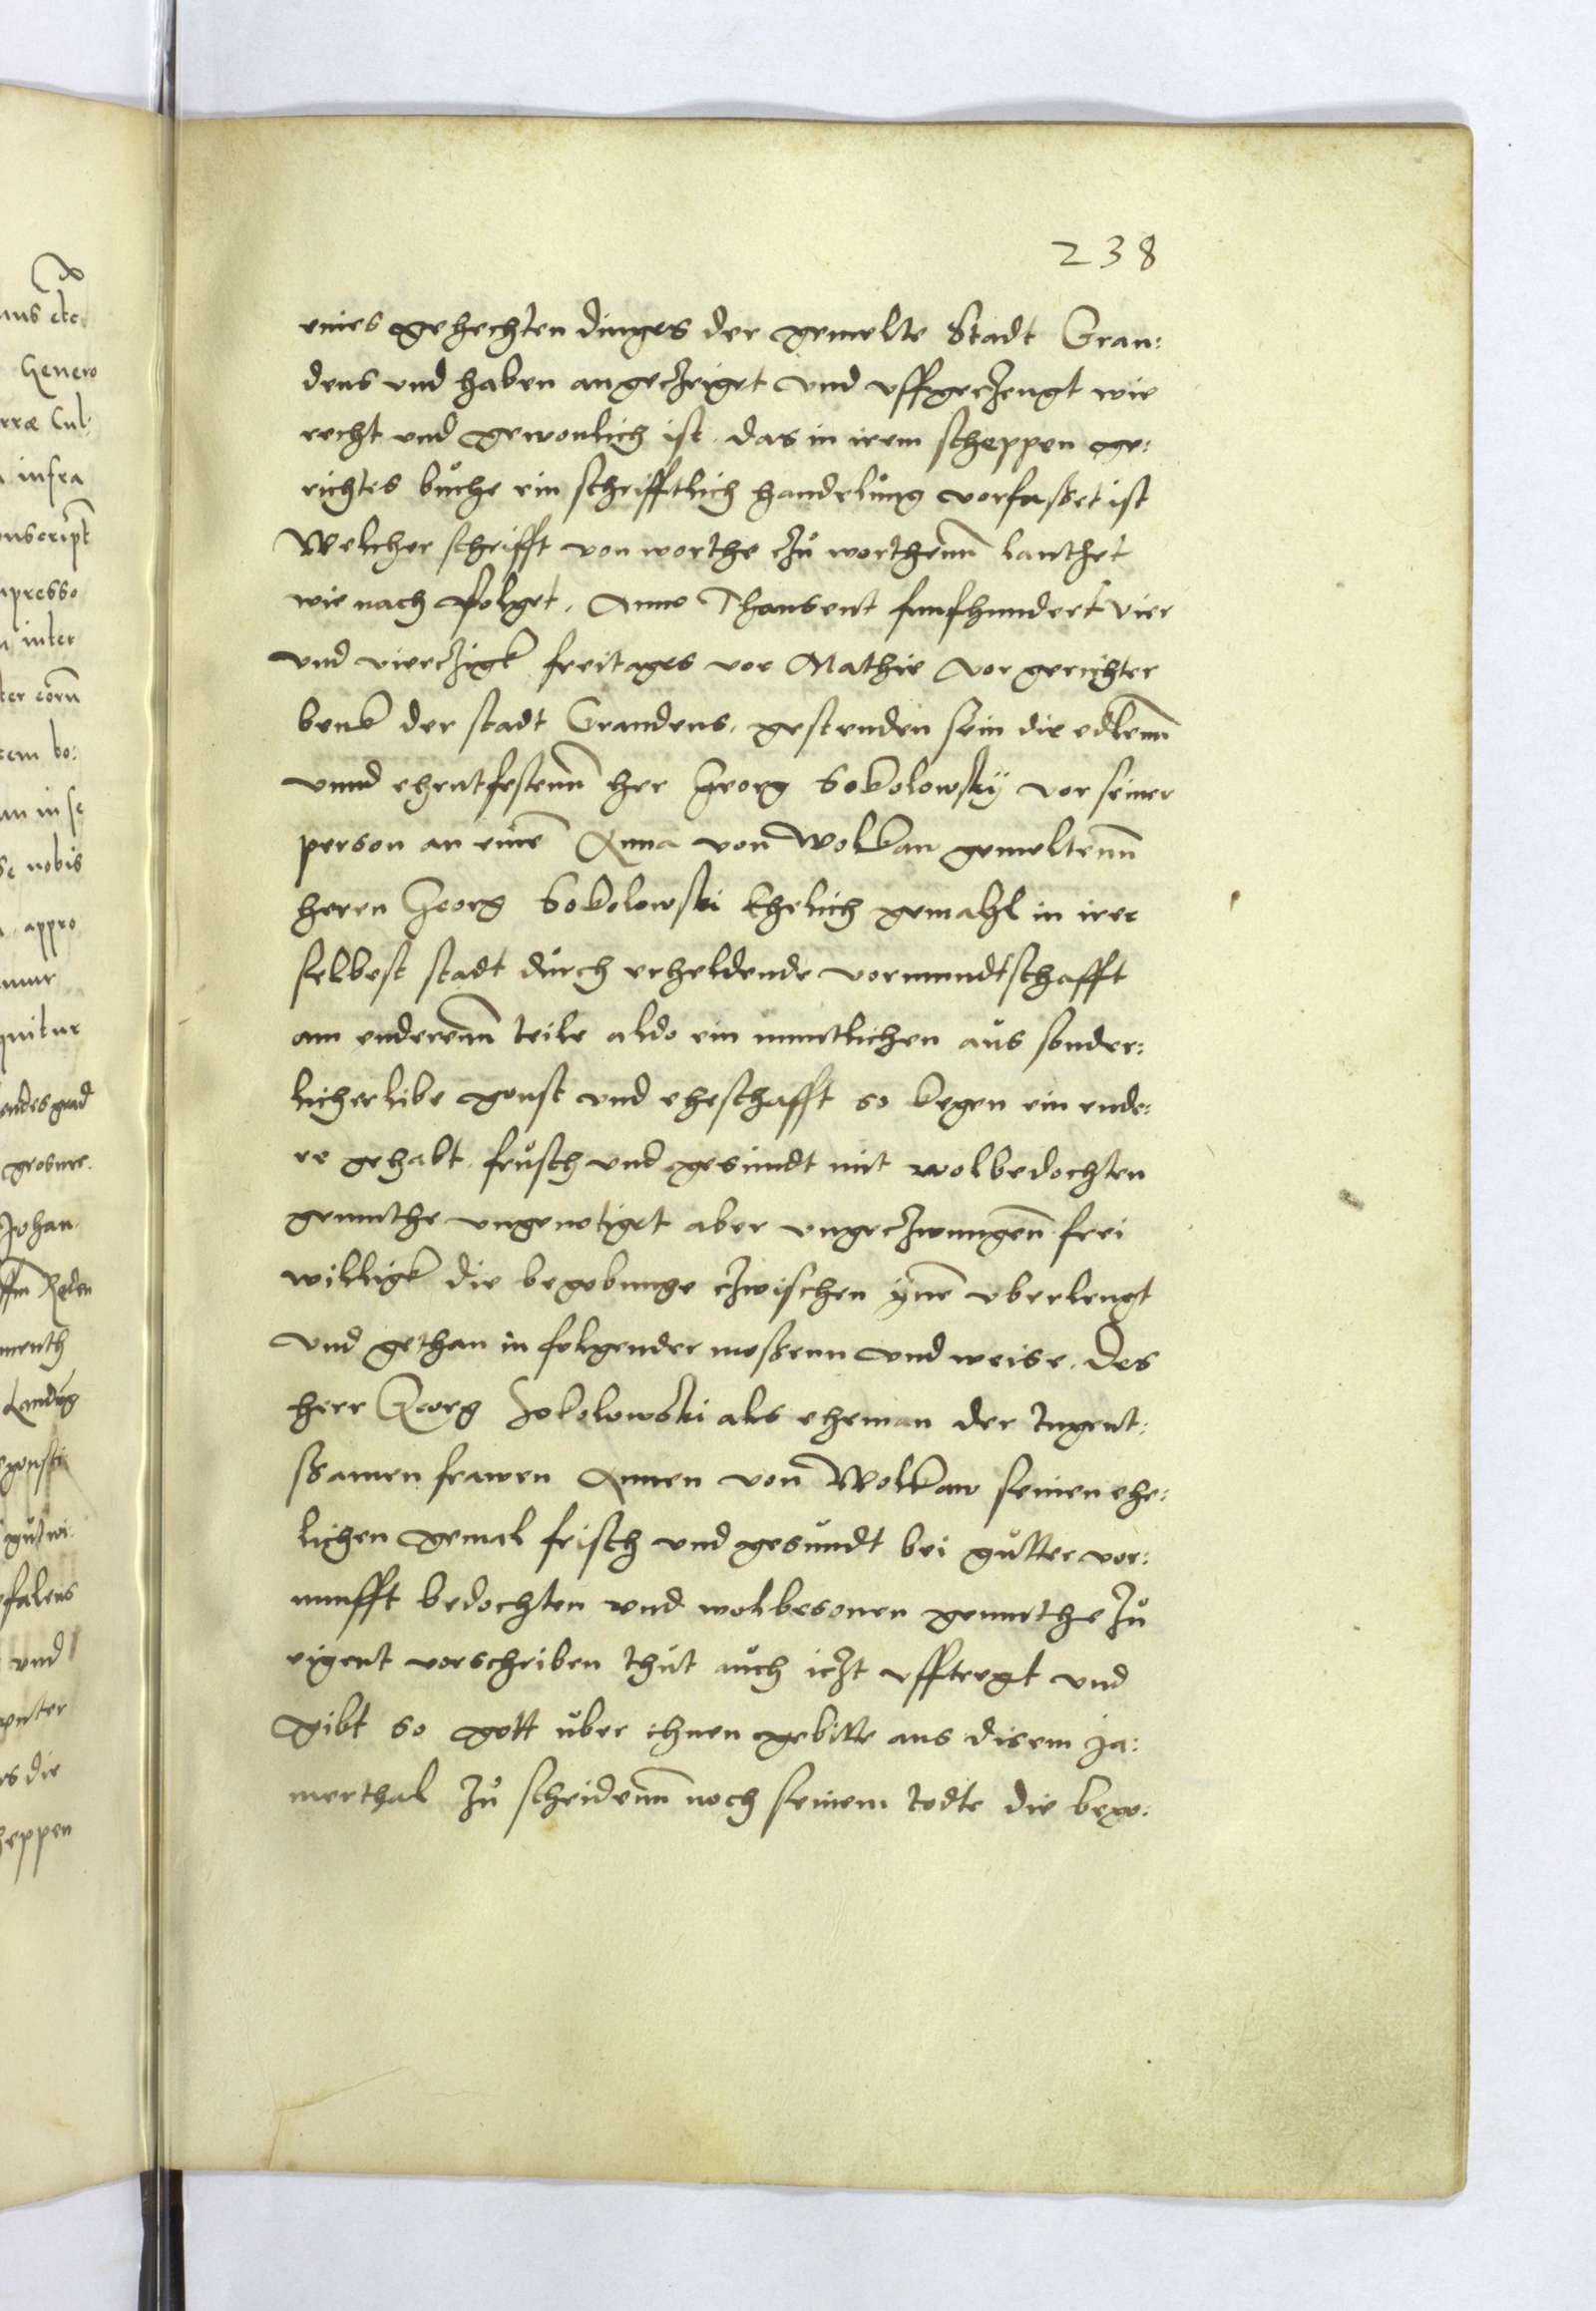 238
eines gehechten dinges der gemelte Stadt Grau:
dens vnd haben angeczeiget vnd vffgeczeugt wie
recht vnd gewonlich ist. das in irem scheppen ge:
richtes bůche ein schrifftlich handelůng vorfasset ist
Welcher schrifft von worthe czů worthenn lauthet
wie nach folget. Anno Thausent funfhundert vier
vnd vierczigk freitages vor Mathie vor gerichter
benk der stadt Graudens. gestenden sein die edlenn
vnnd ehrntfestenn her Georg Sokolowsky vor seiner
person an einē Anna von Wolkau gemeltenn
herrn Georg Sokolowski Ehelich gemahl in irer
selbest stadt důrch erheldende vormundtschafft
am enderenn teile aldo ein muntlichen aůs sonder:
licher libe gonst vnd eheschafft so kegen ein ende:
re gehabt. frůsch vnd gesundt mit wolbedochten
gemuthe vngenotiget aber vngeczwungenn frei
willigk die begebunge czwischen ynē vberlengt
vnd gethan in folgender mossenn vnd weise. Des
herr Georg Sokolowski als eheman der tugent:
ssamen frawen Annen von Wolkaw seinen ehe:
lichen gemal frisch vnd gesůndt bei gůtter vor:
nunfft bedochten vnd wolbesonen gemuthe zů
eigent vorschriben thůt aůch iczt vfftregt vnd
gibt so gott ůber ihnen gebitte aus disem ja:
merthal zů scheidenn noch seinem todte die bego:
Genero
infra
inter
in se
nobis
appro
Johan
vnd